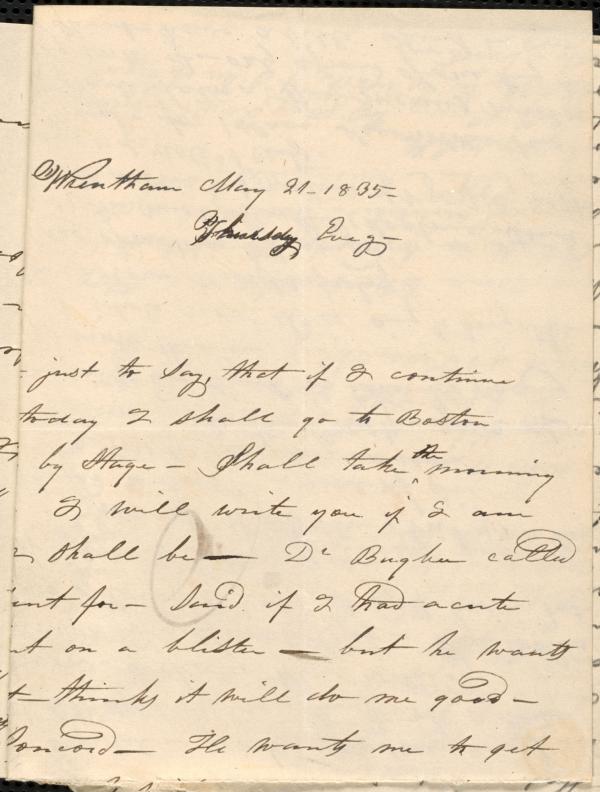 Wrentham May 21 - 1835 -
Thursday Eveg -
just to say, that if I continue
today I shall go to Boston
by Stage - Shall take the morning
I will write you if I am
shall be - Dr Bugbee called
for - Said if I had acute
on a blister - but he wants
- thinks it will do me good -
Concord - He wants me to get